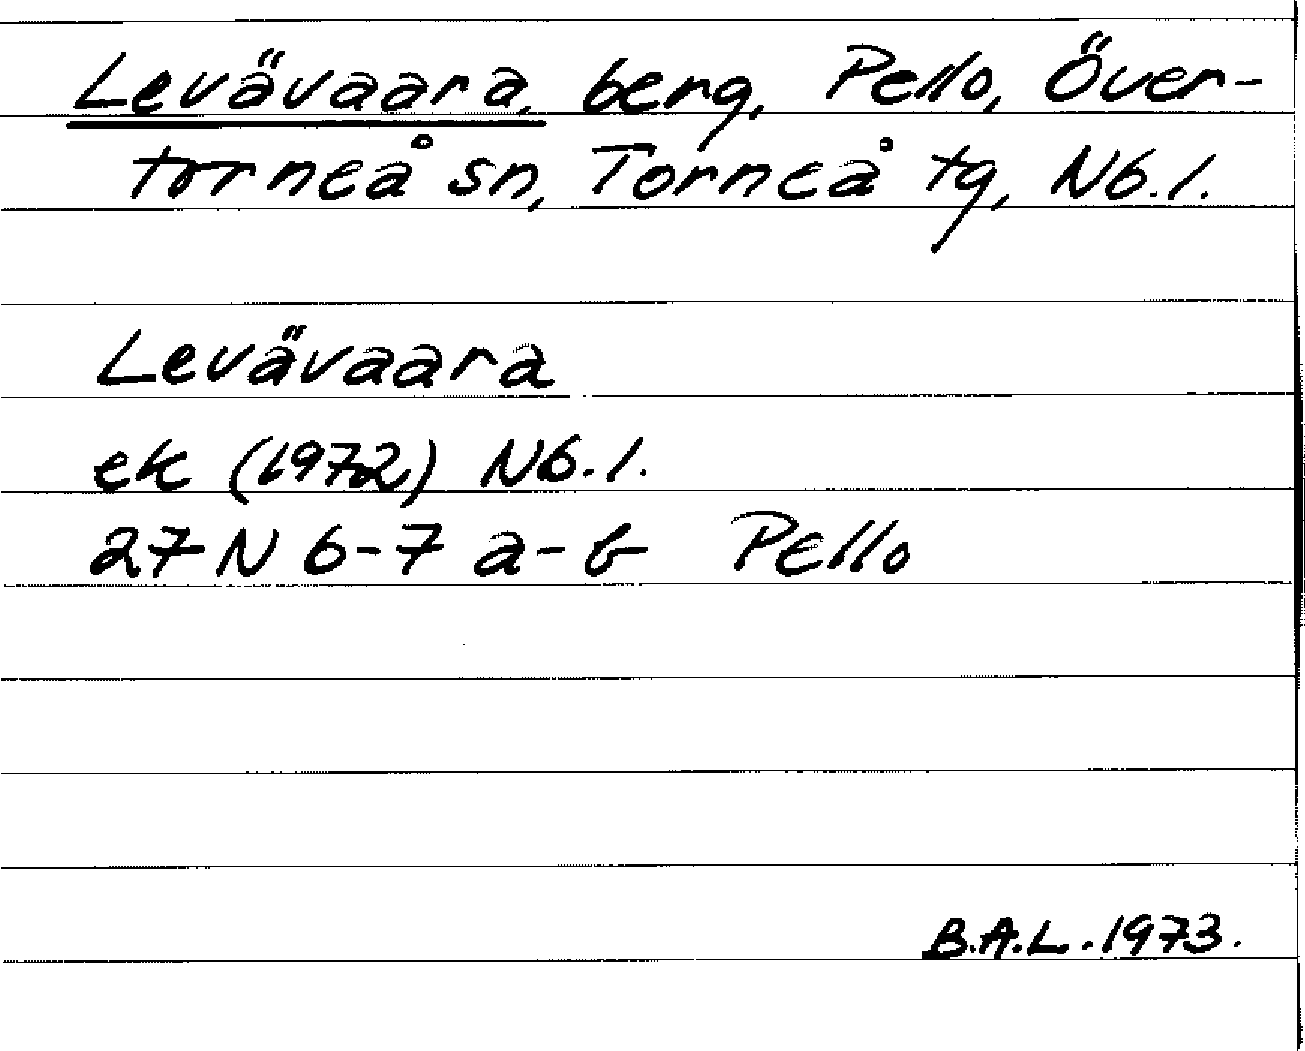 Levävaara, berg, Pello, Över-
torneå sn, Torneå tg, Nb. l.
Levävaara
ek (1972) Nb. l.
27 N 6-7 a-b Pello
B.A.L. 1973.